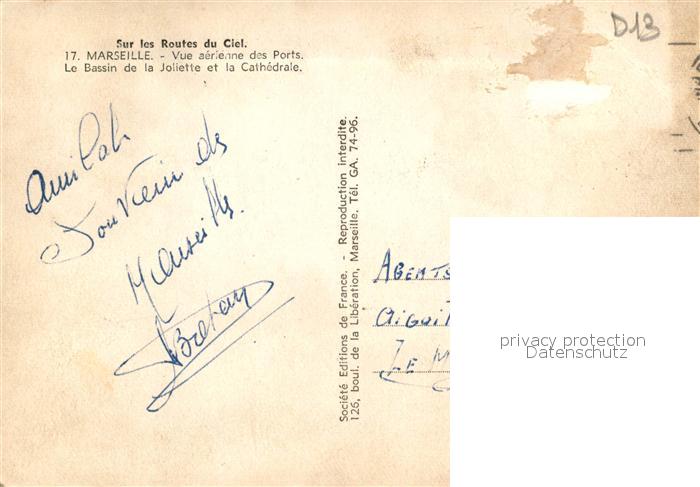 D13
Sur les Routes du Ciel.
17. MARSEILLE. - Vue aérienne des Ports.
Le Bassin de la Joliette et la Cathédrale.
Souvenir de
Marseille.
Société Editions de France. - Reproduction interdite.
126, boul. de la Libération, Marseille. Tél. GA. 74-96.
privacy protection
Datenschutz